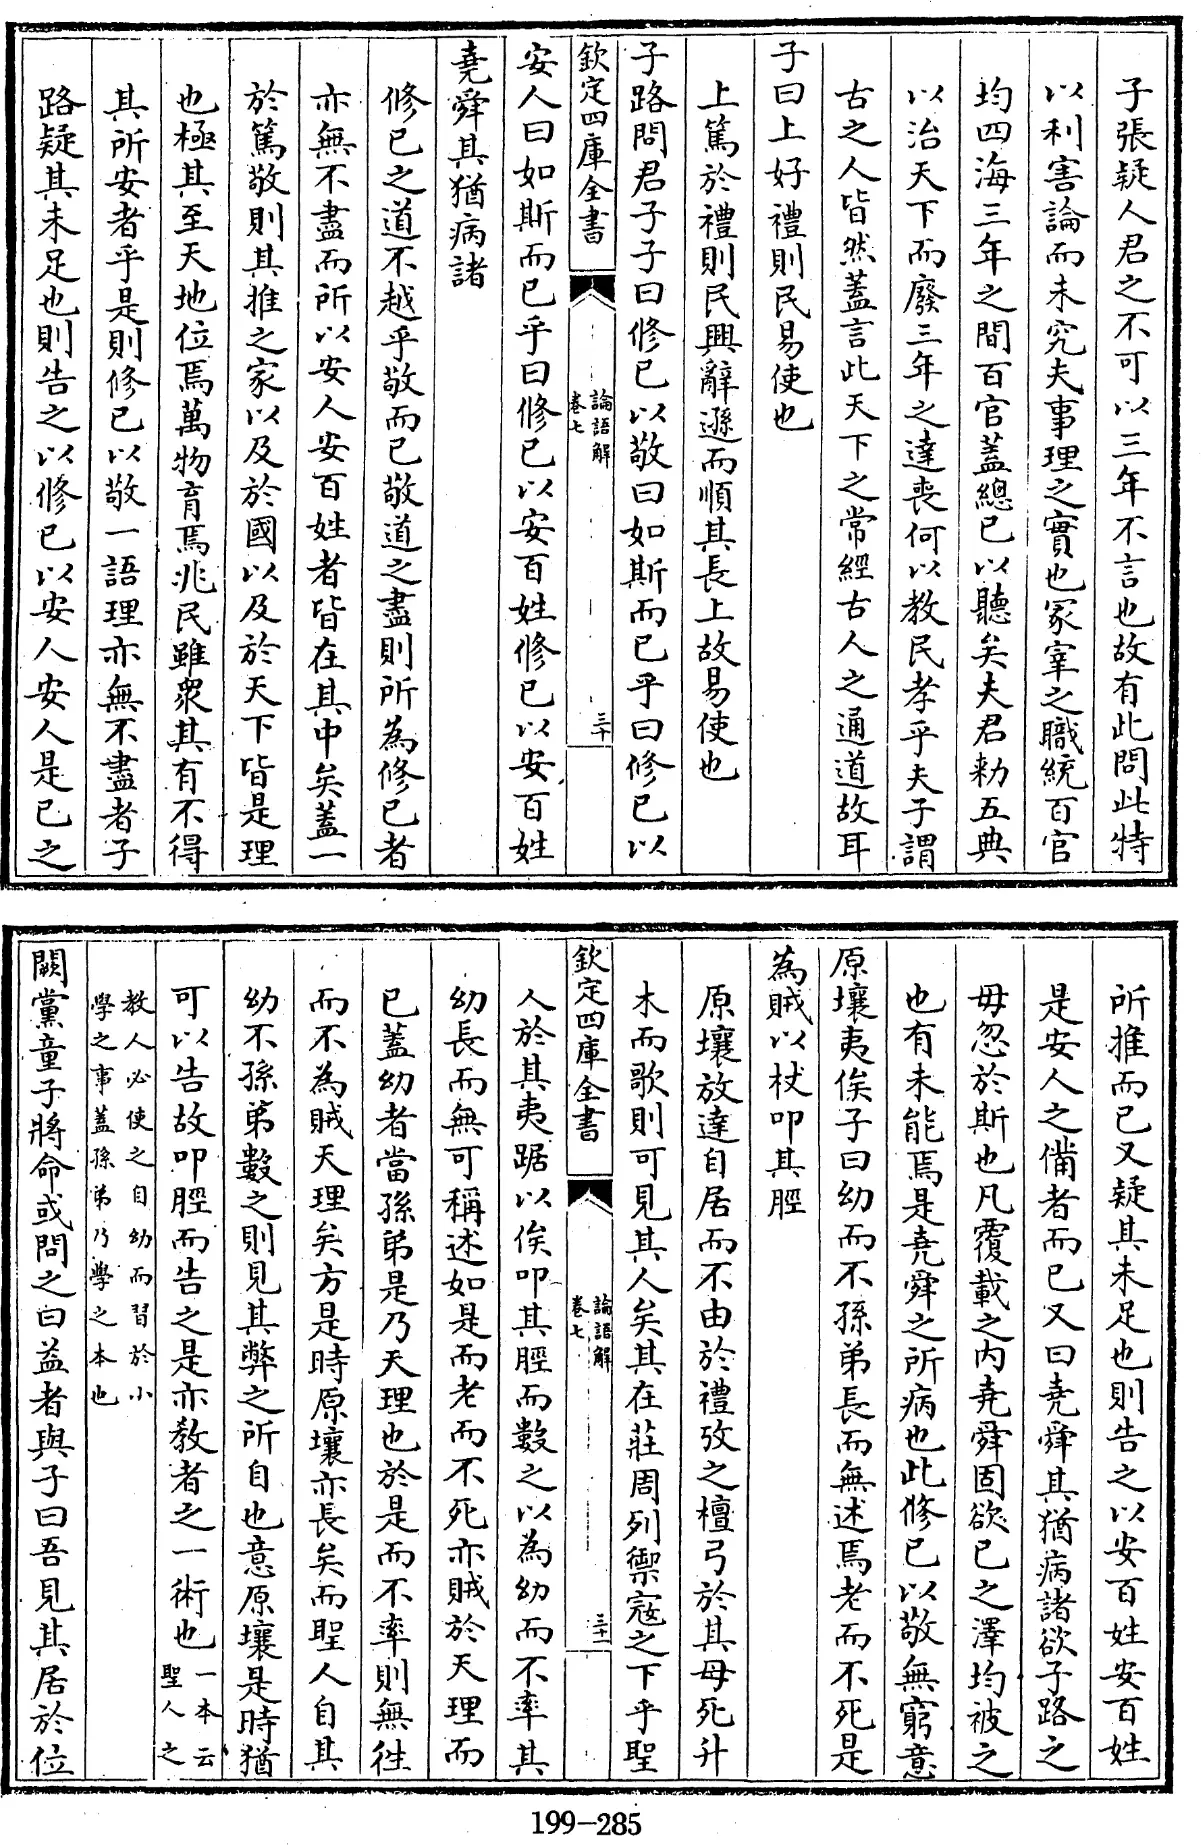 子張疑人君之不可以三年不言也故有此問此特
以利害論而未究夫事理之實也冢宰之職統百官
均四海三年之間百官蓋總已以聽矣夫君勑五典
以治天下而廢三年之達喪何以教民孝乎夫子謂
古之人皆然蓋言此天下之常經古人之通道故耳
子曰上好禮則民易使也
上篤於禮則民興辭遜而順其長上故易使也
子路問君子子曰修已以敬曰如斯而已乎曰修已以
欽定四庫全書
論語解
卷七
三十
安人曰如斯而已乎曰修已以安百姓修已以安百姓
堯舜其猶病諸
修已之道不越乎敬而已敬道之盡則所為修已者
亦無不盡而所以安人安百姓者皆在其中矣蓋一
於篤敬則其推之家以及於國以及於天下皆是理
也極其至天地位焉萬物育焉兆民雖衆其有不得
其所安者乎是則修已以敬一語理亦無不盡者子
路疑其未足也則告之以修已以安人安人是已之
所推而已又疑其未足也則告之以安百姓安百姓
是安人之備者而已又曰堯舜其猶病諸欲子路之
毋忽於斯也凡覆載之内堯舜固欲已之澤均被之
也有未能焉是堯舜之所病也此修已以敬無窮意
原壤夷俟子曰幼而不孫弟長而無述焉老而不死是
為賊以杖叩其脛
原壤放達自居而不由於禮攷之檀弓於其母死升
木而歌則可見其人矣其在莊周列禦寇之下乎聖
欽定四庫全書
論語解
卷七
三十一
人於其夷踞以俟叩其脛而數之以為幼而不率其
幼長而無可稱述如是而老而不死亦賊於天理而
已蓋幼者當孫弟是乃天理也於是而不率則無徃
而不為賊天理矣方是時原壤亦長矣而聖人自其
幼不孫弟數之則見其弊之所自也意原壤是時猶
可以告故叩脛而告之是亦教者之一術也一本云
聖人之
教人必使之自幼而習於小
學之事蓋孫弟乃學之本也
闕黨童子將命或問之曰益者與子曰吾見其居於位
199-285